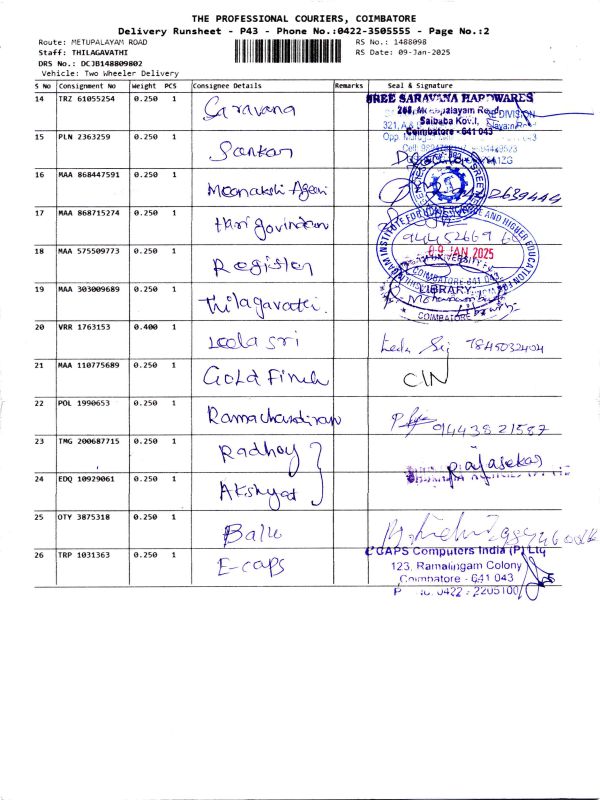 THE PROFESSIONAL COURIERS, COIMBATORE
Delivery Runsheet - P43 - Phone No.:0422-3505555 - Page No.:2
Route: METUPALAYAM ROAD
RS No.: 1488098
Staff: THILAGAVATHI
RS Date: 09-Jan-2025
DRS No.: DCJB148809802
Vehicle: Two Wheeler Delivery
S No Consignment No Weight PCS Consignee Details Remarks Seal & Signature
14 TRZ 61055254 0.250 1 Saravana
SREE SARAVANA HARDWARES
268, Metupalayam Road
Saibaba Kovil,
Coimbatore - 641 043
15 PLN 2363259 0.250 1 Sankar
16 MAA 868447591 0.250 1 Meenakshi Agen
17 MAA 868715274 0.250 1 Hari govindan
94452669
09 JAN 2025
18 MAA 575509773 0.250 1 Register
COIMBATORE-641 043
LIBRARY
COIMBATORE
19 MAA 303009689 0.250 1 Thilagavathi
20 VRR 1763153 0.400 1 Leela sri 7845032404
21 MAA 110775689 0.250 1 Gold Finch CIN
22 POL 1990653 0.250 1 Ramachandiran 9443821587
23 TMG 200687715 0.250 1 Radhey Rajasekar
24 EDQ 10929061 0.250 1 Akshyat
25 OTY 3875318 0.250 1 Balu
26 TRP 1031363 0.250 1 E-caps
e'CAPS Computers India (P) Ltd
123, Ramalingam Colony
Coimbatore - 641 043
0422 - 2205100